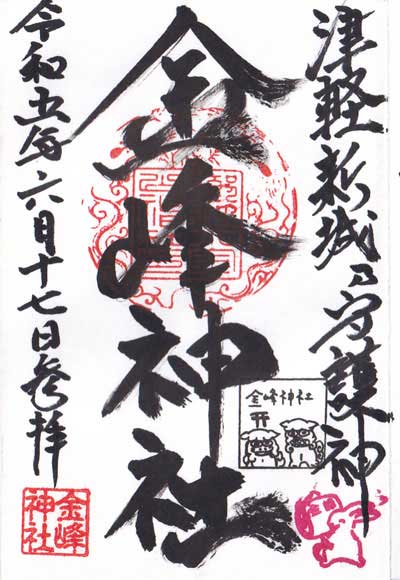 津軽新城乃守護神
金峰神社
令和五年六月十七日参拝
金峰神社
金峰
神社